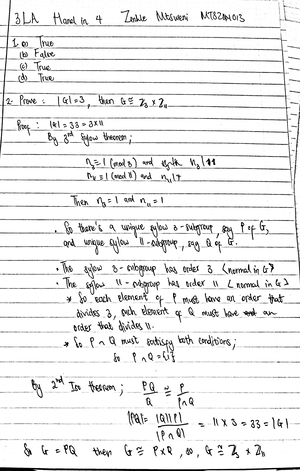 3LA Hand in 4 Zenkle Mtsweni MTSZAN013
1. (a) True
(b) False
(c) True
(d) True
2. Prove: |G|=3, then G ≅ Z₃ × Z₁₁
Proof: |G| = 33 = 3×11
By 3rd Sylow theorem;
n₃ ≡ 1 (mod 3) and n₃ | 11
n₁₁ ≡ 1 (mod 11) and n₁₁ |
Then n₃ = 1 and n₁₁ = 1
• So there's a unique sylow 3-subgroup, say P of G,
and unique sylow 11-subgroup, say Q of G.
• The sylow 3-subgroup has order 3 (normal in G)
• The sylow 11-subgroup has order 11 (normal in G)
* So each element of P must have an order that
divides 3, each element of Q must have an
order that divides 11.
* So P ∩ Q must satisfy both conditions;
So P ∩ Q = {1}
By 2nd Iso theorem; PQ/Q ≅ P/P∩Q
|PQ| = |Q||P|/|P∩Q| = 11 × 3 = 33 = |G|
So G = PQ then G ≅ P×Q, so, G ≅ Z₃ × Z₁₁